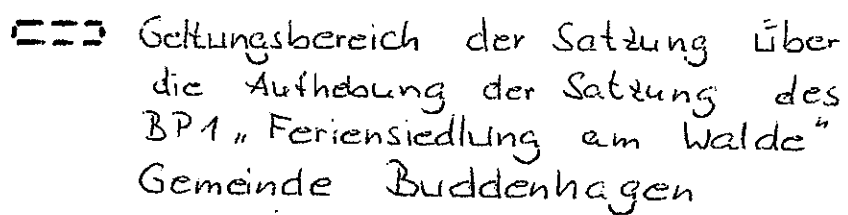 Geltungsbereich der Satzung über
die Aufhebung der Satzung des
BP1 „Feriensiedlung am Walde"
Gemeinde Buddenhagen